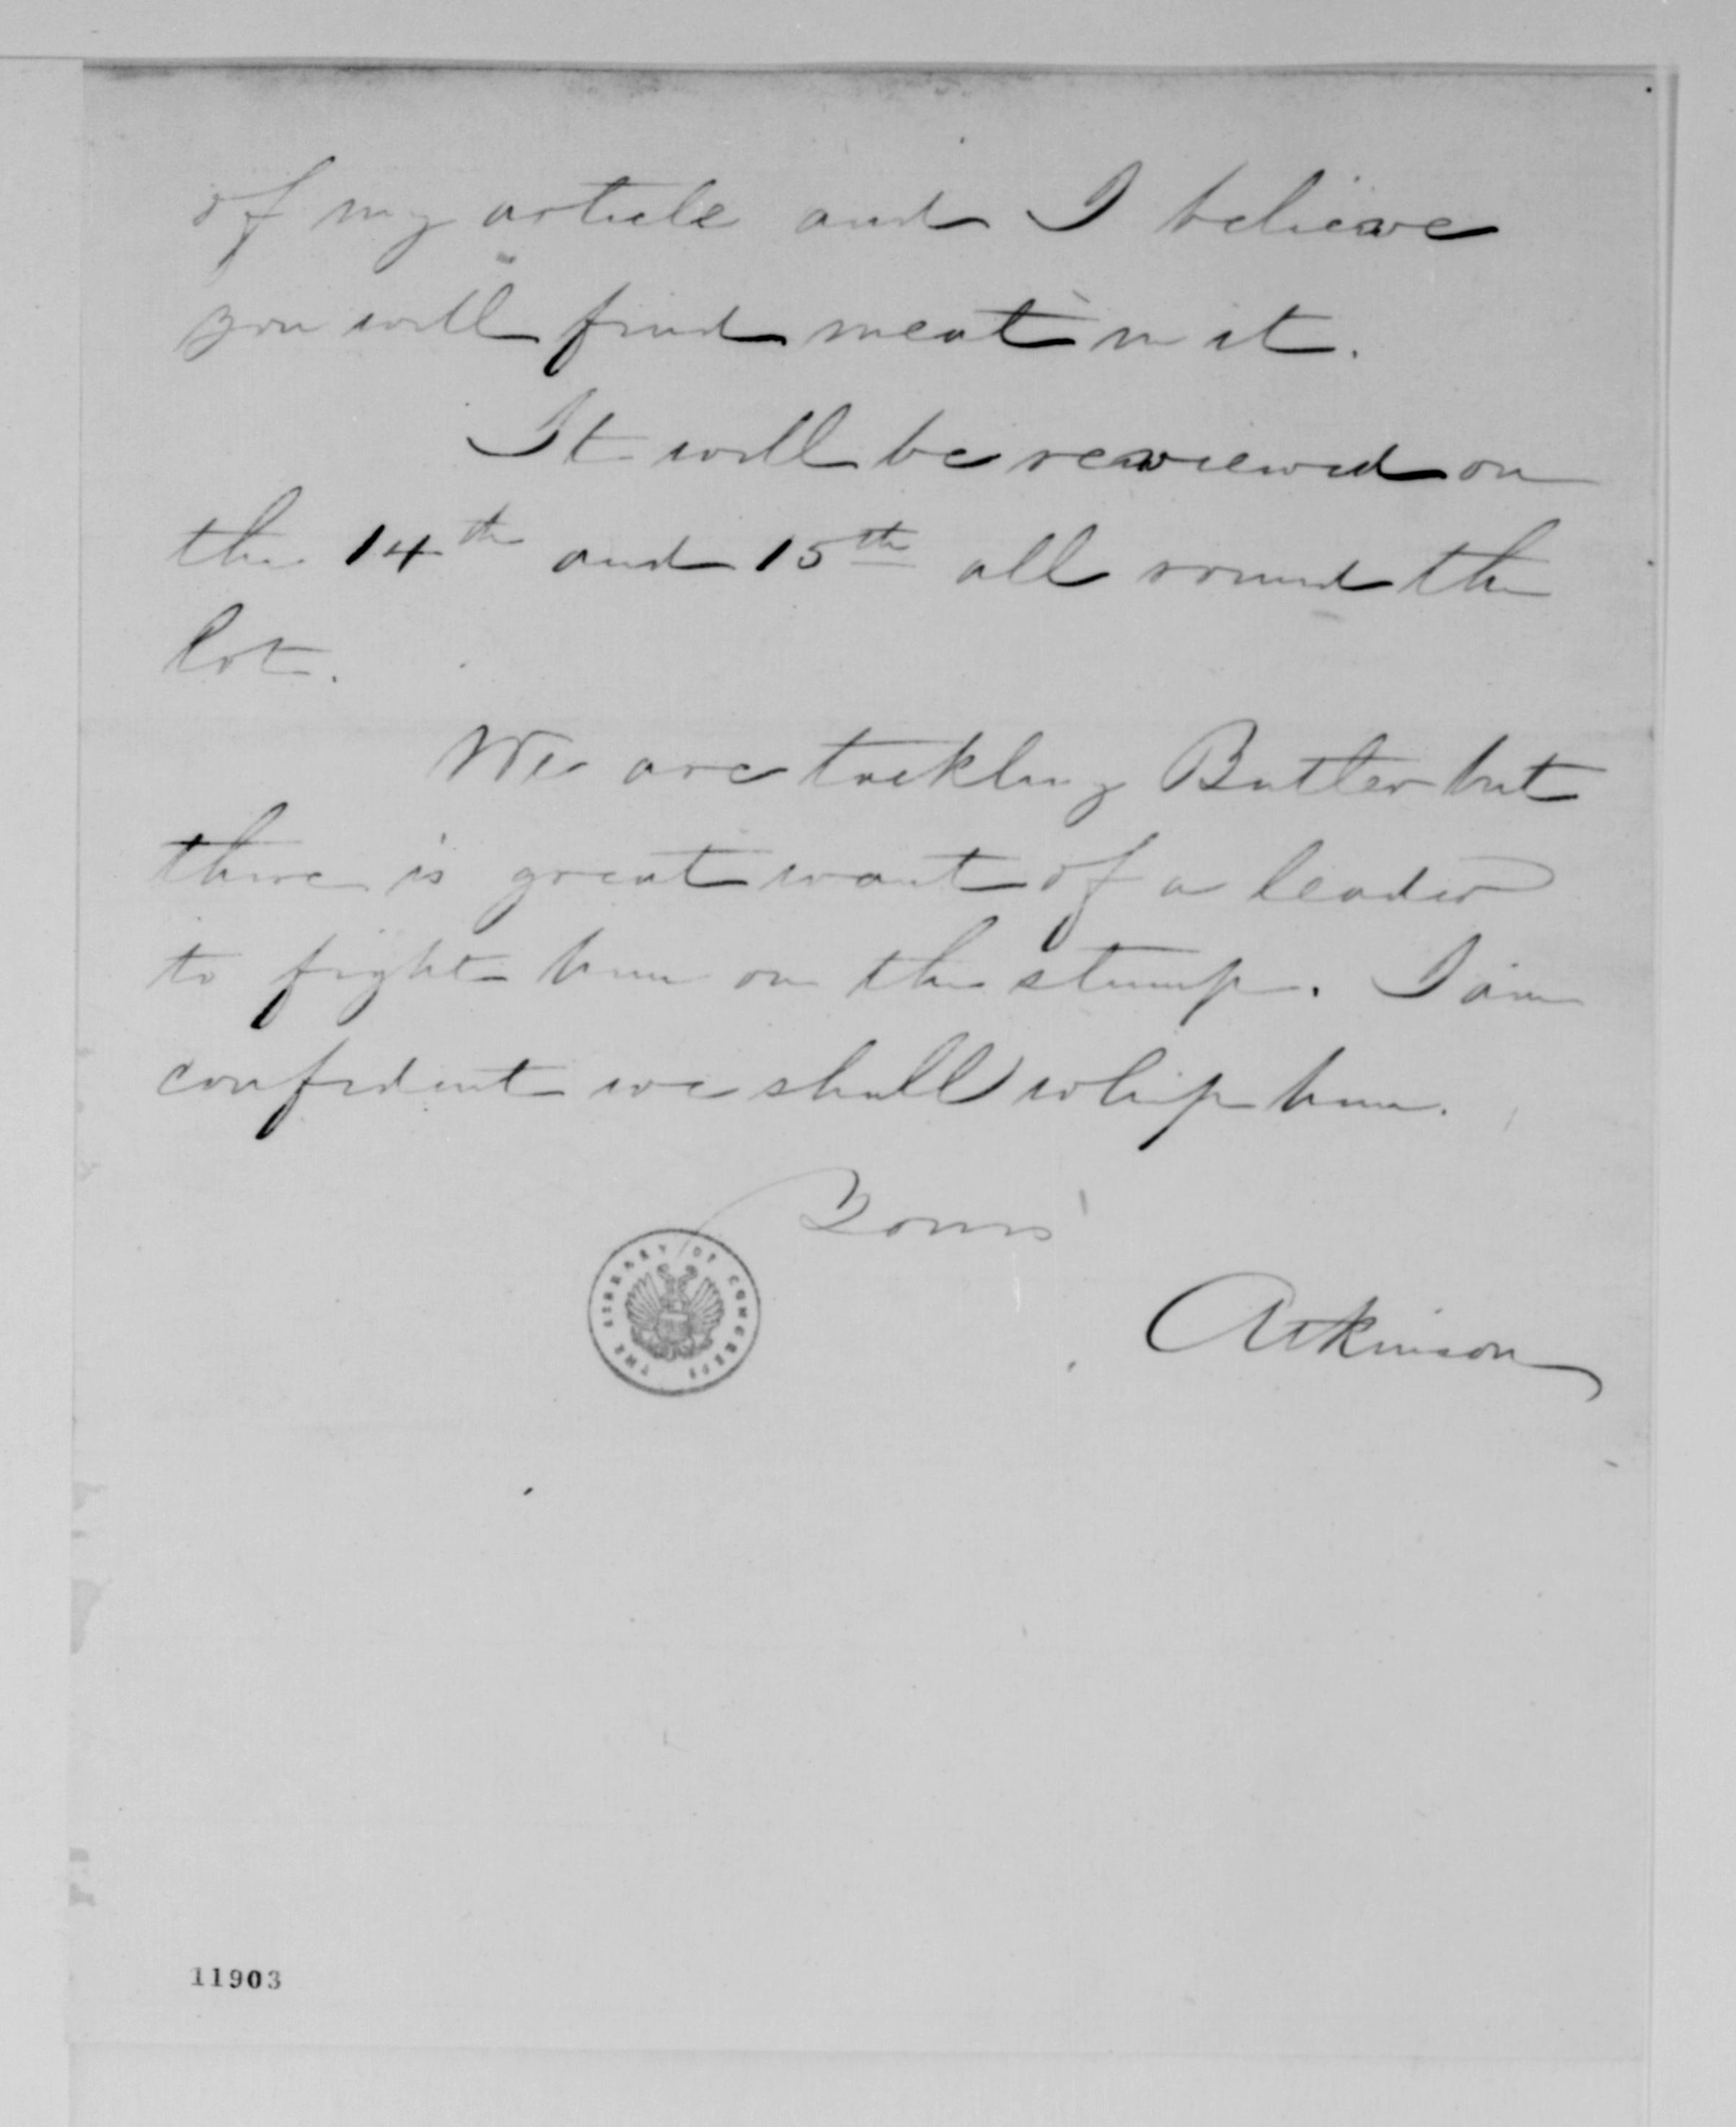 of my article and I believe
you will find meat in it.
It will be reviewed on
the 14th and 15th all round the
lot.
We are tackling Butler but
there is great want of a leader
to fight him on the stump. I am
confident we shall whip him.
Yours
THE LIBRARY OF CONGRESS
Atkinson
11903